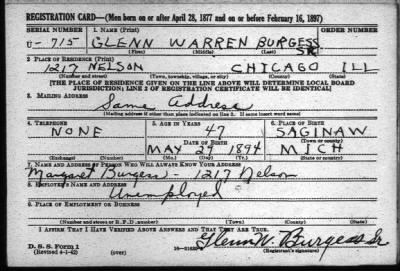 REGISTRATION CARD—(Men born on or after April 28, 1877 and on or before February 16, 1897)
SERIAL NUMBER 1. NAME (Print) ORDER NUMBER
U- 715 GLENN WARREN BURGESS SR
(First) (Middle) (Last)
2. PLACE OF RESIDENCE (Print)
1217 NELSON CHICAGO ILL
(Number and street) (Town, township, village, or city) (County) (State)
[THE PLACE OF RESIDENCE GIVEN ON THE LINE ABOVE WILL DETERMINE LOCAL BOARD
JURISDICTION; LINE 2 OF REGISTRATION CERTIFICATE WILL BE IDENTICAL]
3. MAILING ADDRESS
Same Address
[Mailing address if other than place indicated on line 2. If same insert word same]
4. TELEPHONE 5. AGE IN YEARS 6. PLACE OF BIRTH
NONE 47 SAGINAW
DATE OF BIRTH (Town or county)
MAY 29 1894 MICH
(Exchange) (Number) (Mo.) (Day) (Yr.) (State or country)
7. NAME AND ADDRESS OF PERSON WHO WILL ALWAYS KNOW YOUR ADDRESS
Margaret Burgess - 1217 Nelson
8. EMPLOYER'S NAME AND ADDRESS
Unemployed
9. PLACE OF EMPLOYMENT OR BUSINESS
(Number and street or R. F. D. number) (Town) (County) (State)
I AFFIRM THAT I HAVE VERIFIED ABOVE ANSWERS AND THAT THEY ARE TRUE.
D. S. S. Form 1 Glenn W. Burgess Sr
(Revised 4-1-42) (over) (Registrant's signature)